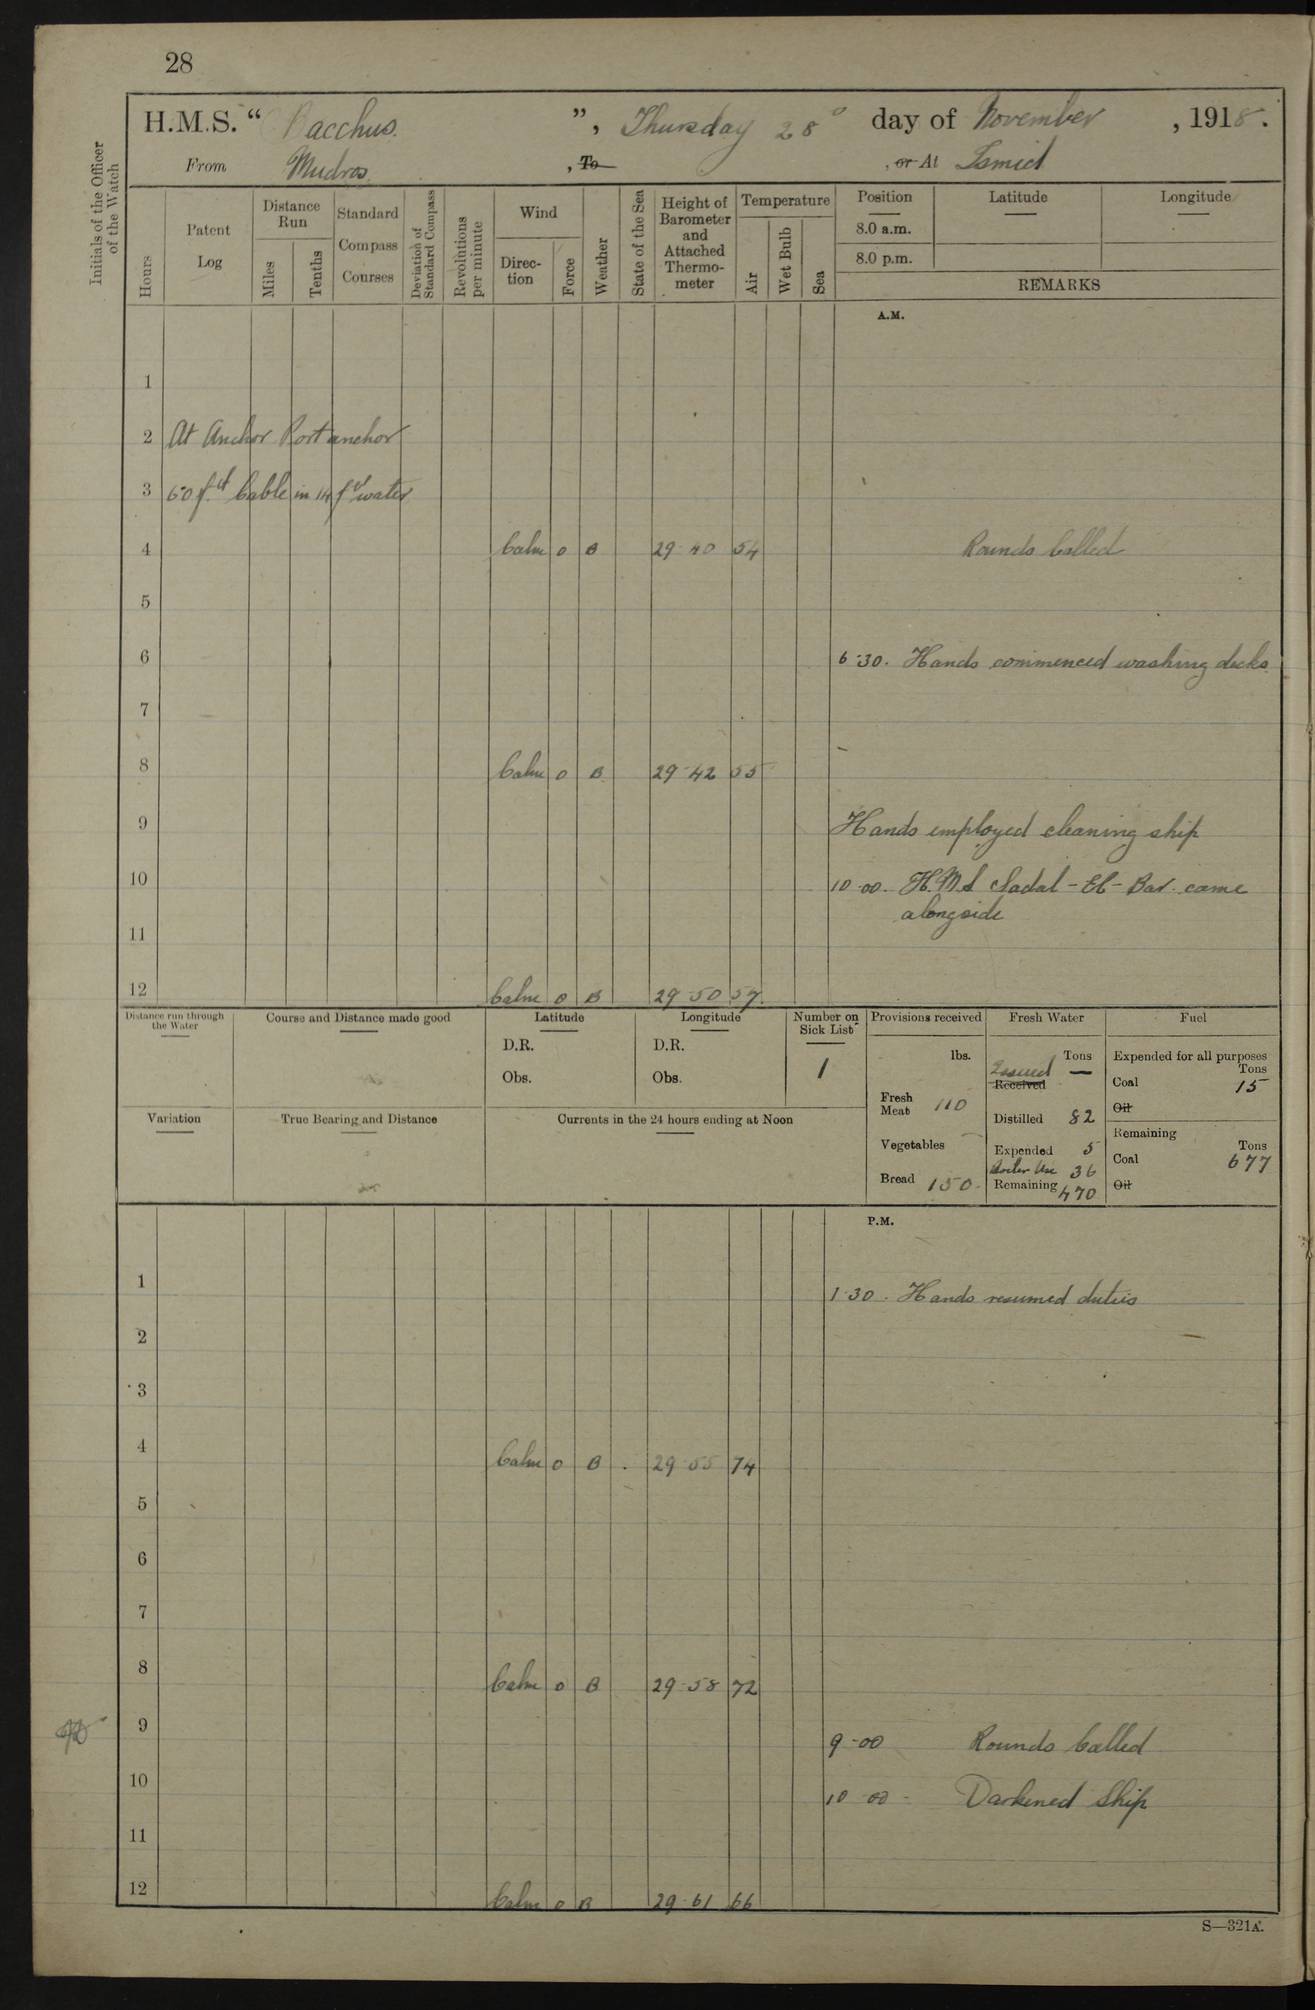 28
H.M.S. “ Bacchus ”, Thursday 28° day of November , 1918.
From Mudros , To , or At Ismid
Initials of the Officer of the Watch
Hours
Patent Log
Distance Run
Miles
Tenths
Standard Compass Courses
Deviation of Standard Compass
Revolutions per minute
Wind
Direc-tion
Force
Weather
State of the Sea
Height of Barometer and Attached Thermo-meter
Temperature
Air
Wet Bulb
Sea
Position Latitude Longitude
8.0 a.m.
8.0 p.m.
REMARKS
A.M.
1
2 At Anchor Port anchor
3 60 fth Cable in 14 fth water
4 Calm 0 B 29·40 54 Rounds Called
5
6 6·30. Hands commenced washing decks
7
8 Calm 0 B 29·42 55
9 Hands employed cleaning ship
10 10·00. H.M.S -El-Bar came
alongside
11
12 Calm 0 B 29·50 57
Distance run through the Water
Course and Distance made good
Latitude
D.R.
Obs.
Longitude
D.R.
Obs.
Number on Sick List
1
Provisions received
lbs.
Fresh Meat 110
Vegetables
Bread 150
Fresh Water
Tons
Issued —
Received
Distilled 82
Expended 5
Boiler Use 36
Remaining 470
Fuel
Expended for all purposes
Tons
Coal 15
Oil
Remaining
Tons
Coal 677
Oil
Variation
True Bearing and Distance
Currents in the 24 hours ending at Noon
P.M.
1 1·30. Hands resumed duties
2
3
4 Calm 0 B 29·55 74
5
6
7
8 Calm 0 B 29·58 72
9 9·00 Rounds Called
10 10·00 Darkened Ship
11
12 Calm 0 B 29·61 66
S—321A.